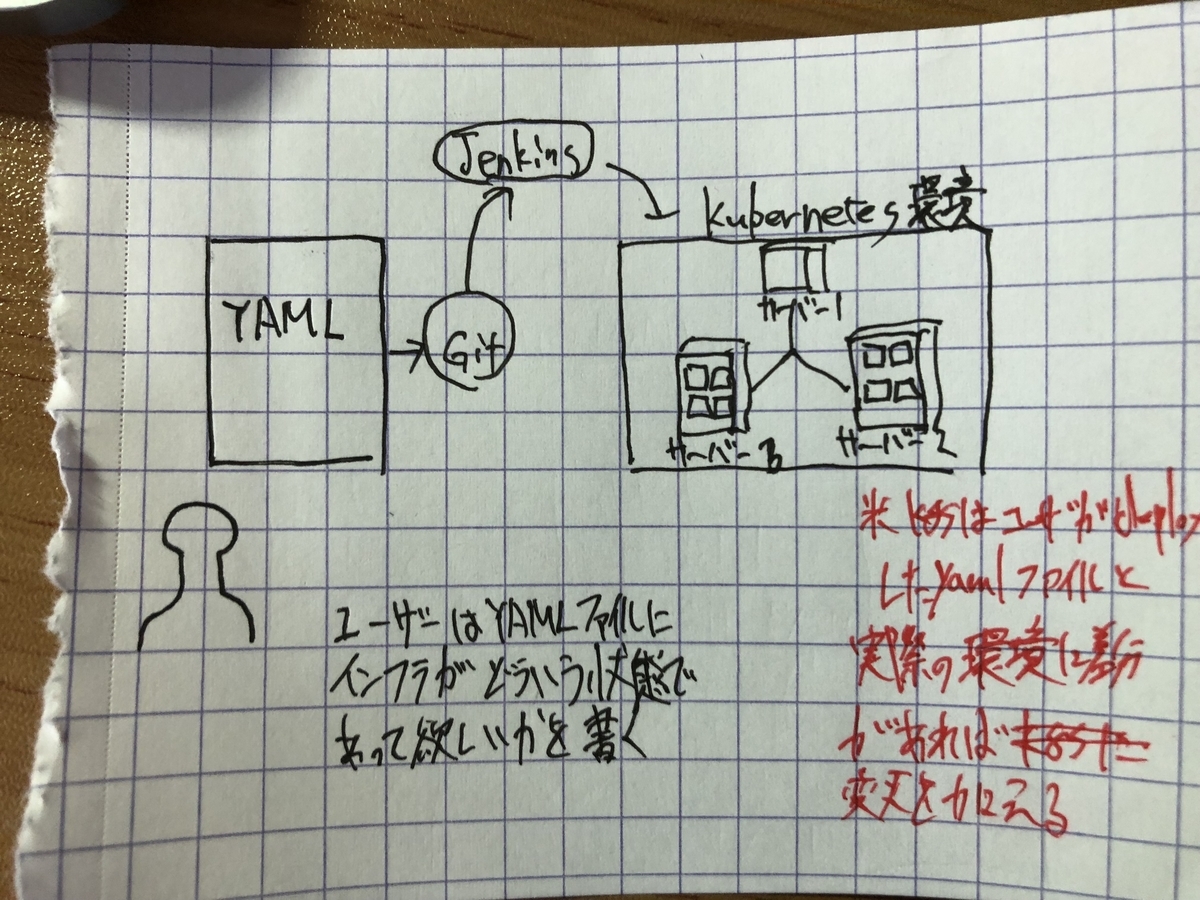 Jenkins
kubernetes環境
YAML
Git
サーバー1
サーバー3
サーバー2
ユーザーはYAMLファイルに
インフラがどういう状態で
あって欲しいかを書く
※k8sはユーザがdeploy
したyamlファイルと
実際の環境に差分
があれば
変更を加える